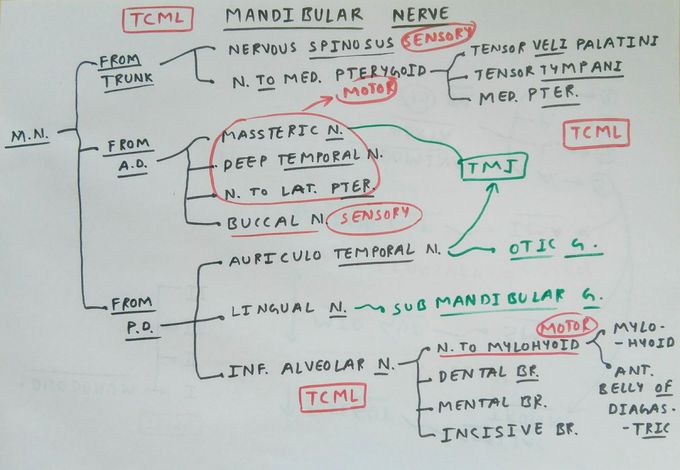 TCML MANDIBULAR NERVE
NERVOUS SPINOSUS SENSORY
FROM TRUNK
N. TO MED. PTERYGOID
TENSOR VELI PALATINI
TENSOR TYMPANI
MED. PTER.
MOTOR
TCML
M.N.
FROM A.D.
MASSTERIC N.
DEEP TEMPORAL N.
N. TO LAT. PTER.
BUCCAL N. SENSORY
TMJ
AURICULO TEMPORAL N.
OTIC G.
FROM P.D.
LINGUAL N.
SUB MANDIBULAR G.
INF. ALVEOLAR N.
MOTOR
N. TO MYLOHYOID
MYLO-
-HYOID
ANT.
BELLY OF
DIAGAS-
-TRIC
DENTAL BR.
MENTAL BR.
INCISIVE BR.
TCML